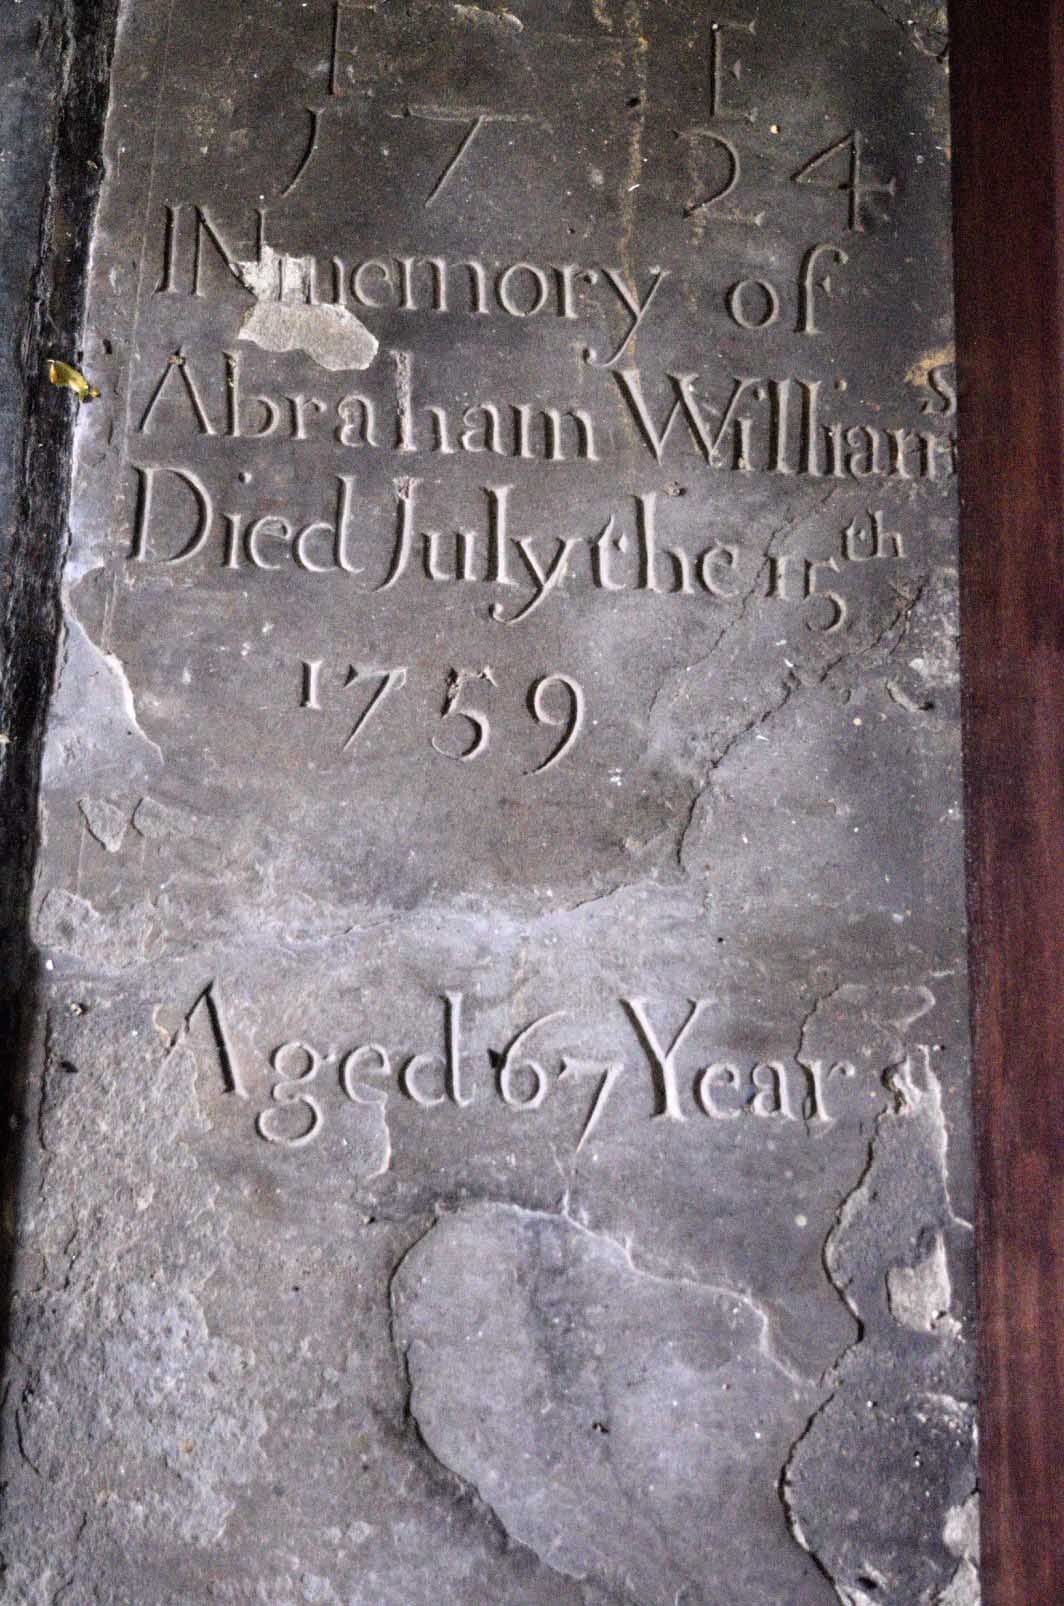 E E
1724
IN memory of
Abraham Williams
Died July the 15th
1759
Aged 67 Years